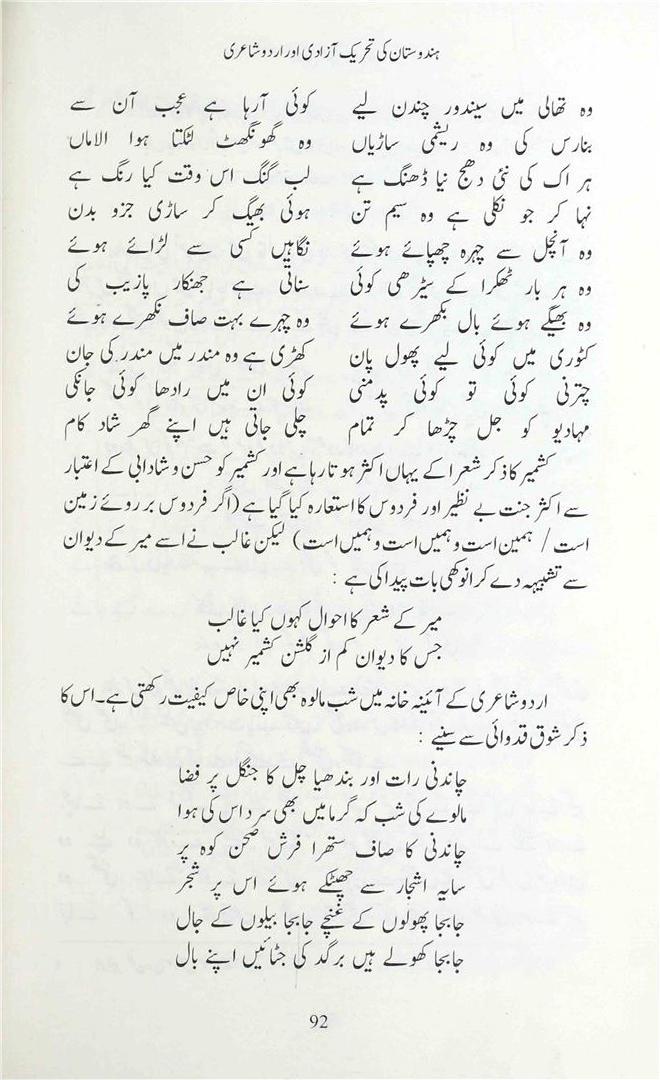 ہندوستان کی تحریک آزادی اور اردو شاعری
وہ تھالی میں سیندور چندن لیے کوئی آرہا ہے عجب آن سے
بنارس کی وہ ریشمی ساڑیاں وہ گھونگھٹ لٹکتا ہوا الاماں
ہر اک کی نئی دھج نیا ڈھنگ ہے لب گنگ اس وقت کیا رنگ ہے
نہا کر جو نکلی ہے وہ سیم تن ہوئی بھیگ کر ساڑی جزو بدن
وہ آنچل سے چہرہ چھپائے ہوئے نگاہیں کسی سے لڑائے ہوئے
وہ ہر بار ٹھکرا کے سیڑھی کوئی سناتی ہے جھنکار پازیب کی
وہ بھیگے ہوئے بال بکھرے ہوئے وہ چہرے بہت صاف نکھرے ہوئے
کٹوری میں کوئی لیے پھول پان کھڑی ہے وہ مندر میں مندر کی جان
چترنی کوئی تو کوئی پدمنی کوئی ان میں رادھا کوئی جانکی
مہادیو کو جل چڑھا کر تمام چلی جاتی ہیں اپنے گھر شاد کام
کشمیر کا ذکر شعرا کے یہاں اکثر ہوتا رہا ہے اور کشمیر کو حسن و شادابی کے اعتبار
سے اکثر جنت بے نظیر اور فردوس کا استعارہ کیا گیا ہے (اگر فردوس بر روئے زمین
است / ہمین است و ہمیں است و ہمیں است) لیکن غالب نے اسے میر کے دیوان
سے تشبیہہ دے کر انوکھی بات پیدا کی ہے :
میر کے شعر کا احوال کہوں کیا غالب
جس کا دیوان کم از گلشن کشمیر نہیں
اردو شاعری کے آئینہ خانہ میں شب مالوہ بھی اپنی خاص کیفیت رکھتی ہے۔ اس کا
ذکر شوق قدوائی سے سنیے :
چاندنی رات اور بندھیا چل کا جنگل پر فضا
مالوے کی شب کہ گرما میں بھی سرد اس کی ہوا
چاندنی کا صاف ستھرا فرش صحن کوہ پر
سایہ اشجار سے چھٹکے ہوئے اس پر شجر
جابجا پھولوں کے غنچے جابجا بیلوں کے جال
جابجا کھولے ہیں برگد کی جٹائیں اپنے بال
92